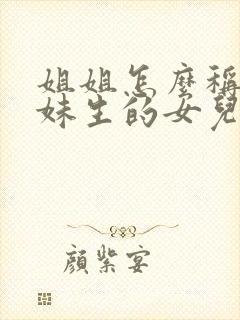 姐姐怎麼稱
妹生的女兒
顏紫宴